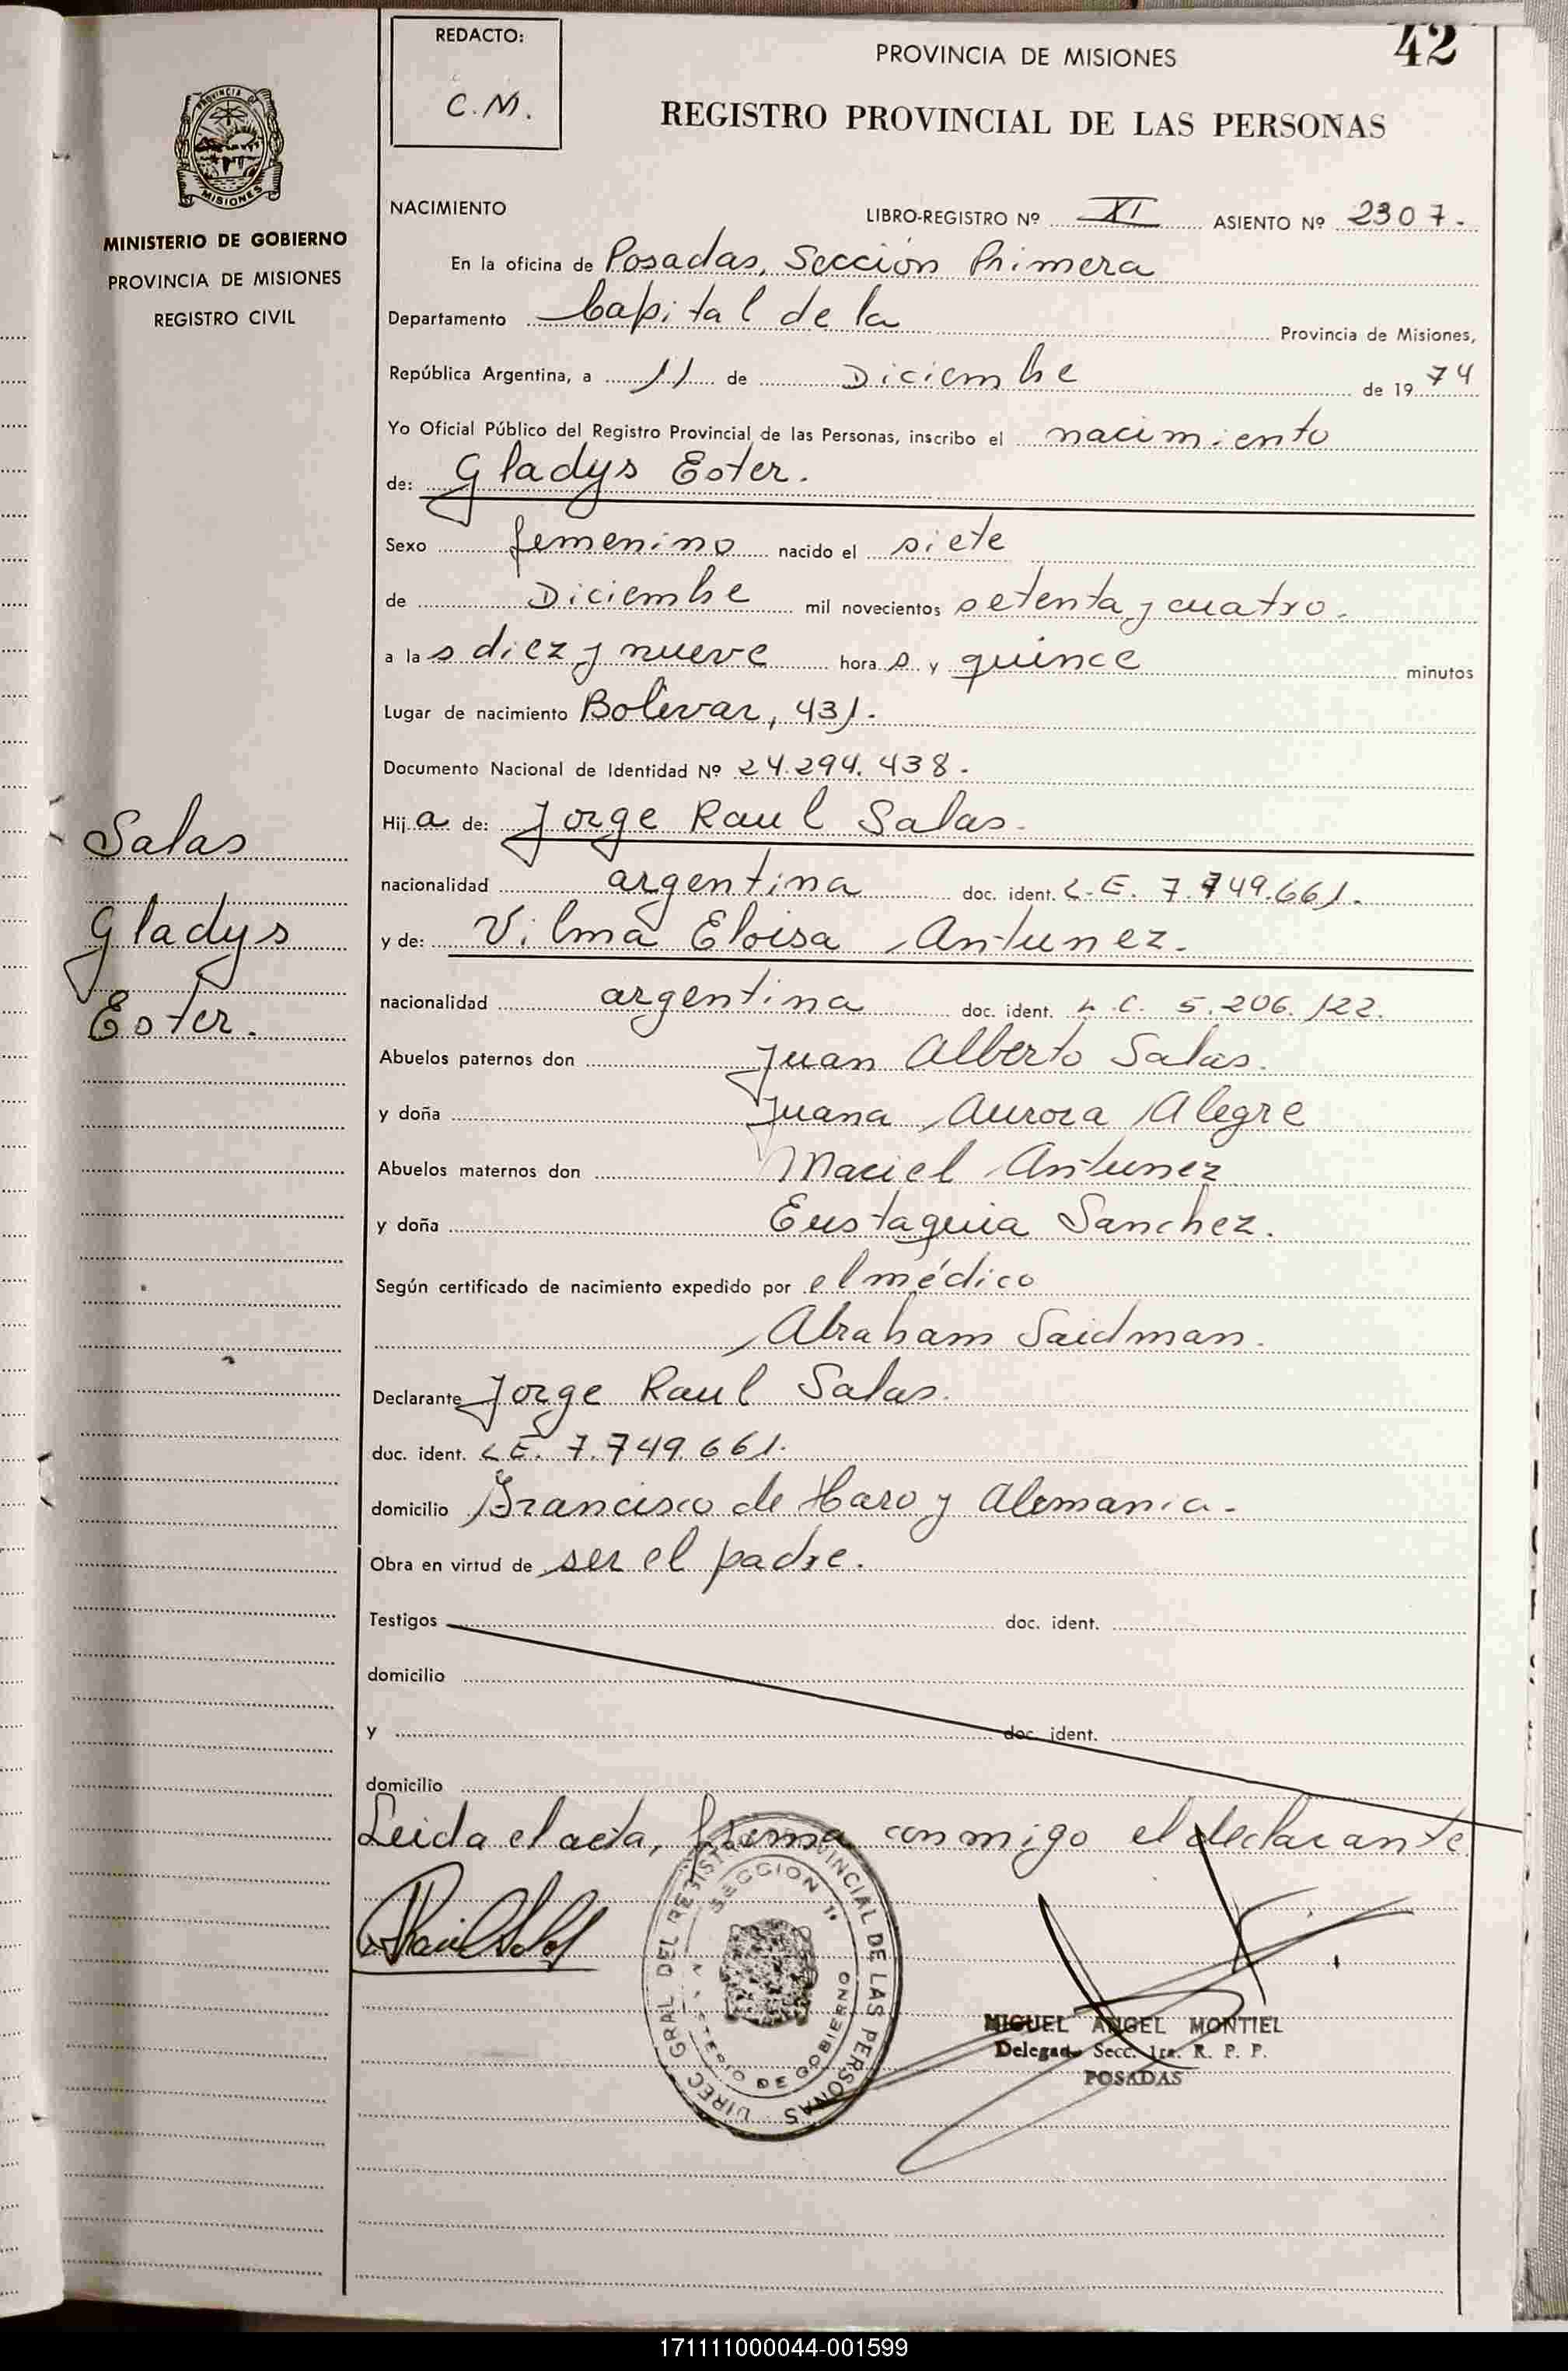 REDACTO:
C.M.
PROVINCIA DE MISIONES
42
REGISTRO PROVINCIAL DE LAS PERSONAS
PROVINCIA DE
MISIONES
MINISTERIO DE GOBIERNO
PROVINCIA DE MISIONES
REGISTRO CIVIL
NACIMIENTO
LIBRO-REGISTRO Nº XI ASIENTO Nº 2307.
En la oficina de Posadas, Sección Primera
Departamento Capital de la Provincia de Misiones,
República Argentina, a 11 de Diciembre de 1974
Yo Oficial Público del Registro Provincial de las Personas, inscribo el nacimiento
de: Gladys Ester.
Sexo femenino nacido el siete
de Diciembre mil novecientos setenta y cuatro.
a las diez y nueve horas y quince minutos
Lugar de nacimiento Bolivar, 431.
Documento Nacional de Identidad Nº 24.294.438.
Hija de: Jorge Raul Salas.
nacionalidad argentina doc. ident. L.E. 7.749.661.
y de: Vilma Eloisa Antunez.
nacionalidad argentina doc. ident. L.C. 5.206.122.
Abuelos paternos don Juan Alberto Salas.
y doña Juana Aurora Alegre
Abuelos maternos don Maciel Antunez
y doña Eustaquia Sanchez.
Según certificado de nacimiento expedido por el médico
Abraham Saidman.
Declarante Jorge Raul Salas.
doc. ident. L.E. 7.749.661.
domicilio Francisco de Haro y Alemania.
Obra en virtud de ser el padre.
Testigos doc. ident.
domicilio
y doc. ident.
domicilio
Leida el acta, firma conmigo el declarante
Salas
Gladys
Ester.
DIREC. GRAL DEL REGISTRO PROVINCIAL DE LAS PERSONAS
SECCION 1ª
MINISTERIO DE GOBIERNO
MIGUEL ANGEL MONTIEL
Delegado Secc. 1ra. R. P. P.
POSADAS
171111000044-001599